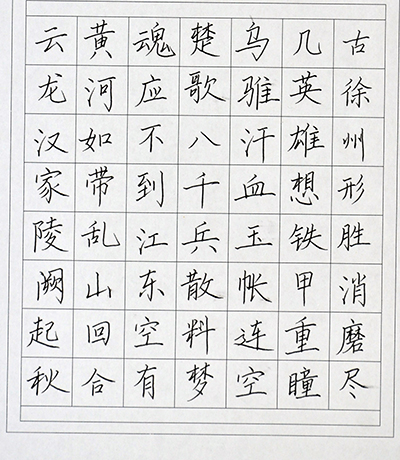 古徐州形胜消磨尽
几英雄想铁甲重瞳
乌骓汗血玉帐连空
楚歌八千兵散料梦
魂应不到江东空有
黄河如带乱山回合
云龙汉家陵阙起秋